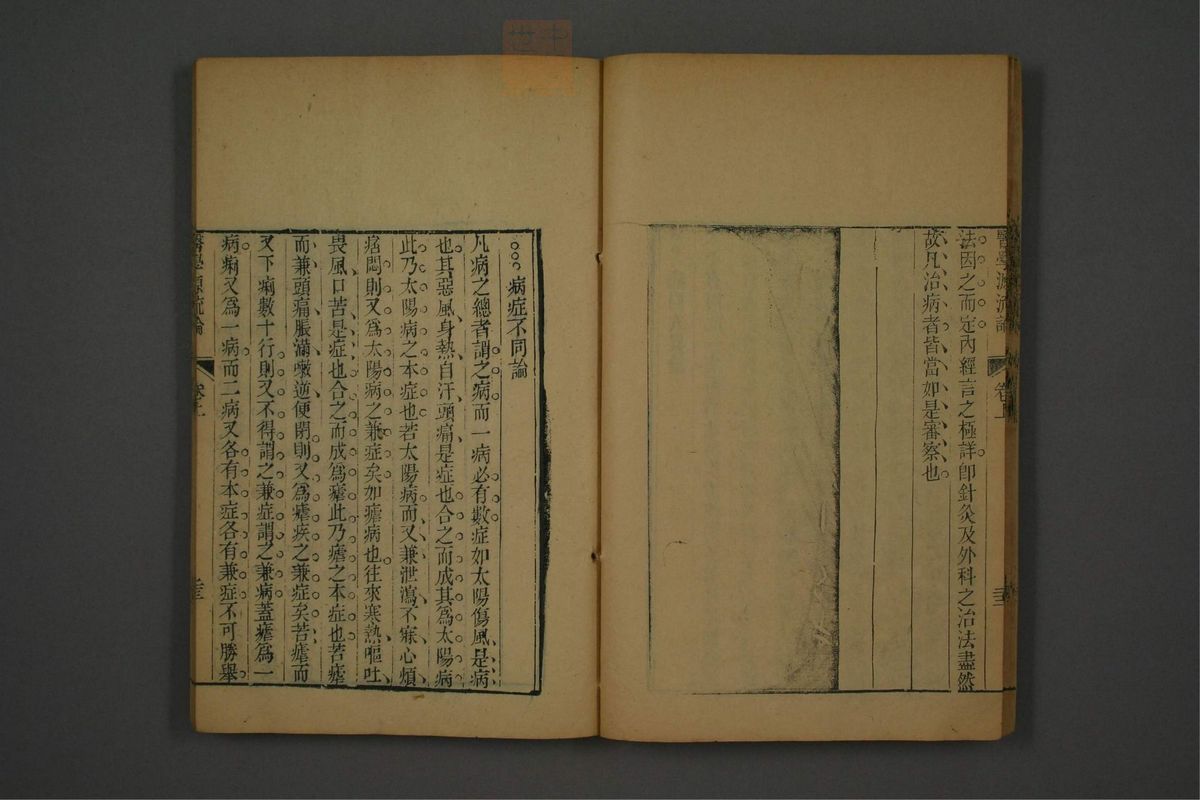 醫學源流論　卷上
法因之而定內經言之極詳卽針灸及外科之治法盡然
故凡治病者皆當如是審察也
病症不同論
凡病之總者謂之病而一病必有數症如太陽傷風是病
也其惡風身熱自汗頭痛是症也合之而成其爲太陽病
此乃太陽病之本症也若太陽病而又兼泄瀉不寐心煩
痞悶則又爲太陽病之兼症矣如瘧病也往來寒熱嘔吐
畏風口苦是症也合之而成爲瘧此乃瘧之本症也苦瘧
而兼頭痛脹滿嗽逆便閉則又爲瘧疾之兼症矣苦瘧而
又下痢數十行則又不得謂之兼症謂之兼病蓋瘧爲一
病痢又爲一病而二病又各有本症各有兼症不可勝舉
醫學源流論　卷上